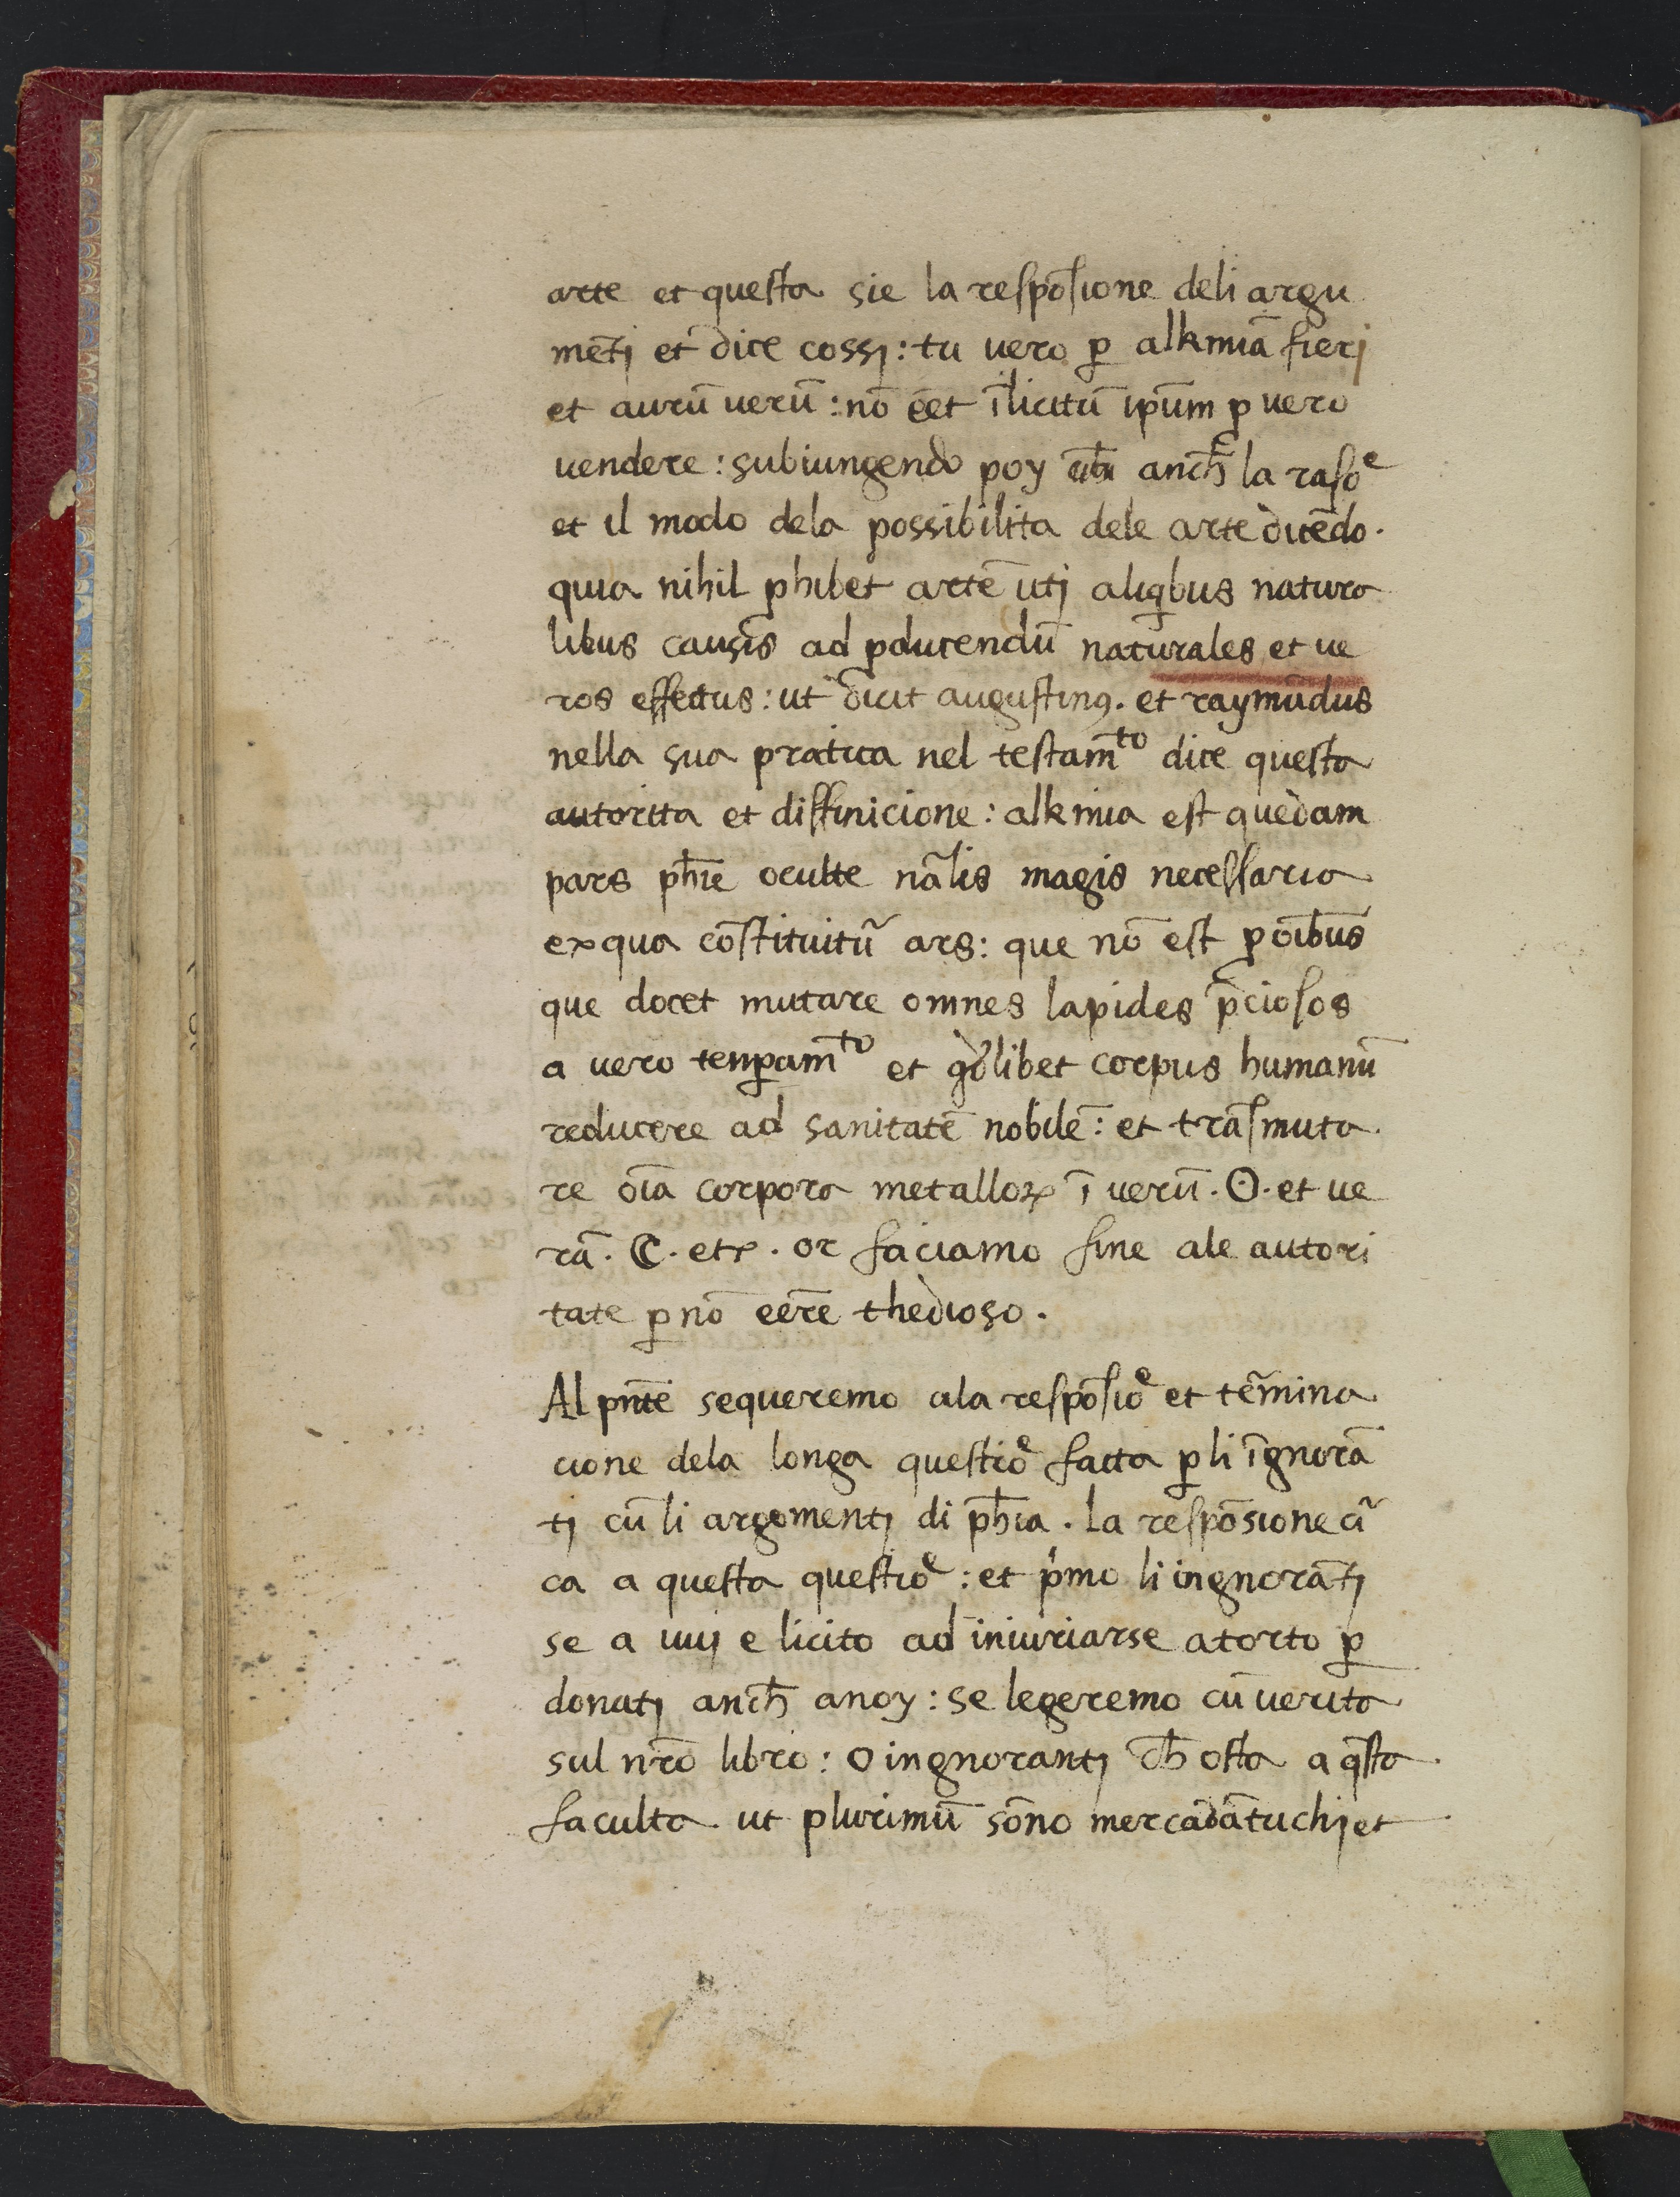 arte et questa sie la respōsione deli argu
mētj et dice cossj: tu vero ꝑ alkmiā fierj
et aurū uerū: nō eēt īlicitū ipūm ꝓ uero
uendere: subiungendo poy anch̄ la rasōᵉ
et il modo dela possibilita dele arte dicēdo.
quia nihil ꝓhibet artē utj aliqͥbus natura
libus causis ad ꝓducendū naturales et ue
ros effectus: ut dicit augustinꝰ. et raymūdus
nella sua pratica nel testam̄ᵗᵒ dice questa
autorita et diffinicione: alkmia est quedam
pars ph̄ie oculte nāˡis magis necessaria
ex qua cōstituitur̄ ars: que nō est ꝑ oībus
que docet mutare omnes lapides p̄ciosos
a uero temꝑam̄ᵗᵒ et qͦdlibet corpus humanū
reducere ad sanitatē nobilē: et trāsmuta
re oīa corpora metalloꝝ ī uerū. ☉. et ue
rā. ☾. etc̄. or faciamo fine ale autori
tate ꝑ nō eēre thedioso.
Al pn̄te sequeremo ala respōsiōᵉ et tēmina
cione dela longa questiōᵉ facta ꝑ li īgnorā
tj cū li argomentj di ph̄ia. la respōsione cir̄
ca a questa questiōᵉ: et pͥmo li ingnorātj
se a uuj e licito ad iniuriarse atorto ꝑ
donatj anch̄ anoy: se legeremo cū uerita
sul nr̄o libro: o ingnorantj ch̄ osta a qͣsta
faculta ut plurimū sōno mercadātuchj et